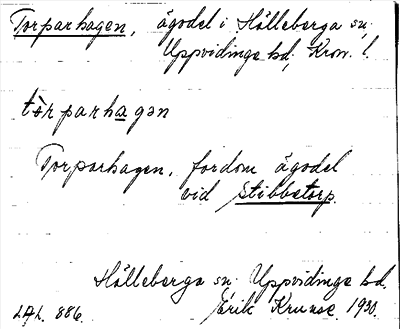 Torparhagen, ägodel i Hälleberga sn.
Uppvidinge hd, Kron. l.
tòrparhagən
Torparhagen, fordom ägodel
vid Stibbetorp.
Hälleberga sn. Uppvidinge hd.
LAL. 886. Erik Kruuse 1930.